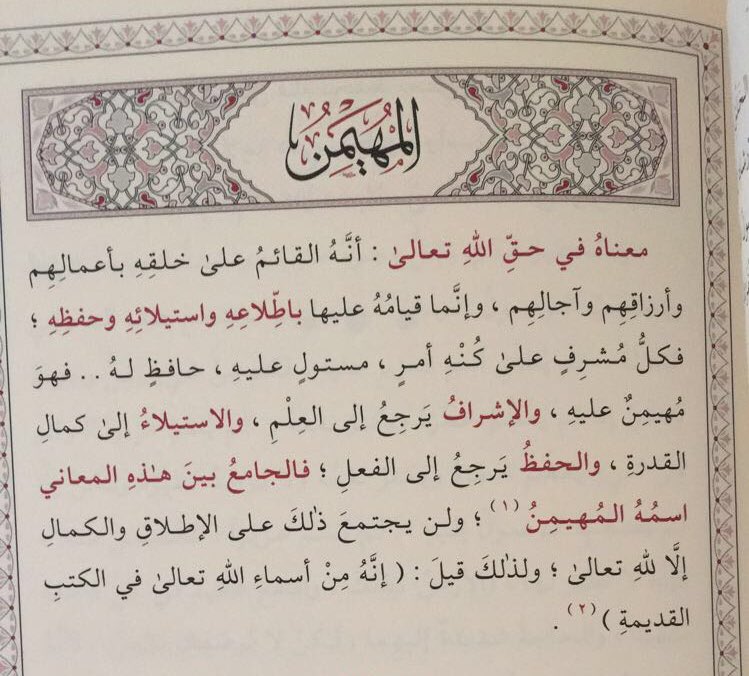 المُهَيْمِنُ
معناهُ في حقِّ اللهِ تعالىٰ : أنَّهُ القائمُ علىٰ خلقِهِ بأعمالِهِم
وأرزاقِهِم وآجالِهِم ، وإنَّما قيامُهُ عليها باطِّلاعِهِ واستيلائِهِ وحفظِهِ ؛
فكلُّ مُشرِفٍ علىٰ كُنْهِ أمرٍ ، مستولٍ عليهِ ، حافظٍ لهُ . . فهوَ
مُهيمِنٌ عليهِ ، والإشرافُ يَرجِعُ إلى العِلْمِ ، والاستيلاءُ إلىٰ كمالِ
القدرةِ ، والحفظُ يَرجِعُ إلى الفعلِ ؛ فالجامعُ بينَ هـٰذهِ المعاني
اسمُهُ المُهيمِنُ (١) ؛ ولن يجتمعَ ذٰلكَ على الإطلاقِ والكمالِ
إلَّا للهِ تعالىٰ ؛ ولذٰلكَ قيلَ : ( إنَّهُ مِنْ أسماءِ اللهِ تعالىٰ في الكتبِ
القديمةِ ) (٢) .